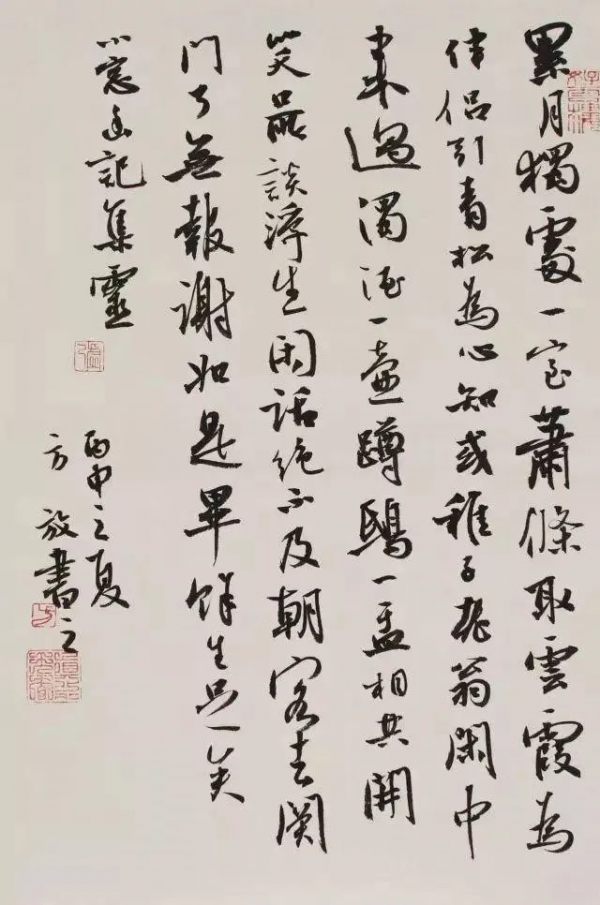 累月獨處一室蕭條取雲霞為
伴侶引青松為心知或稚子老翁閑中
来過濁酒一壺蹲鴟一盂相共開
笑品談浮生闲話絕不及朝客去関
門了無報謝如是畢餘生足矣
小窓幽記集靈
丙申之夏
方放書之